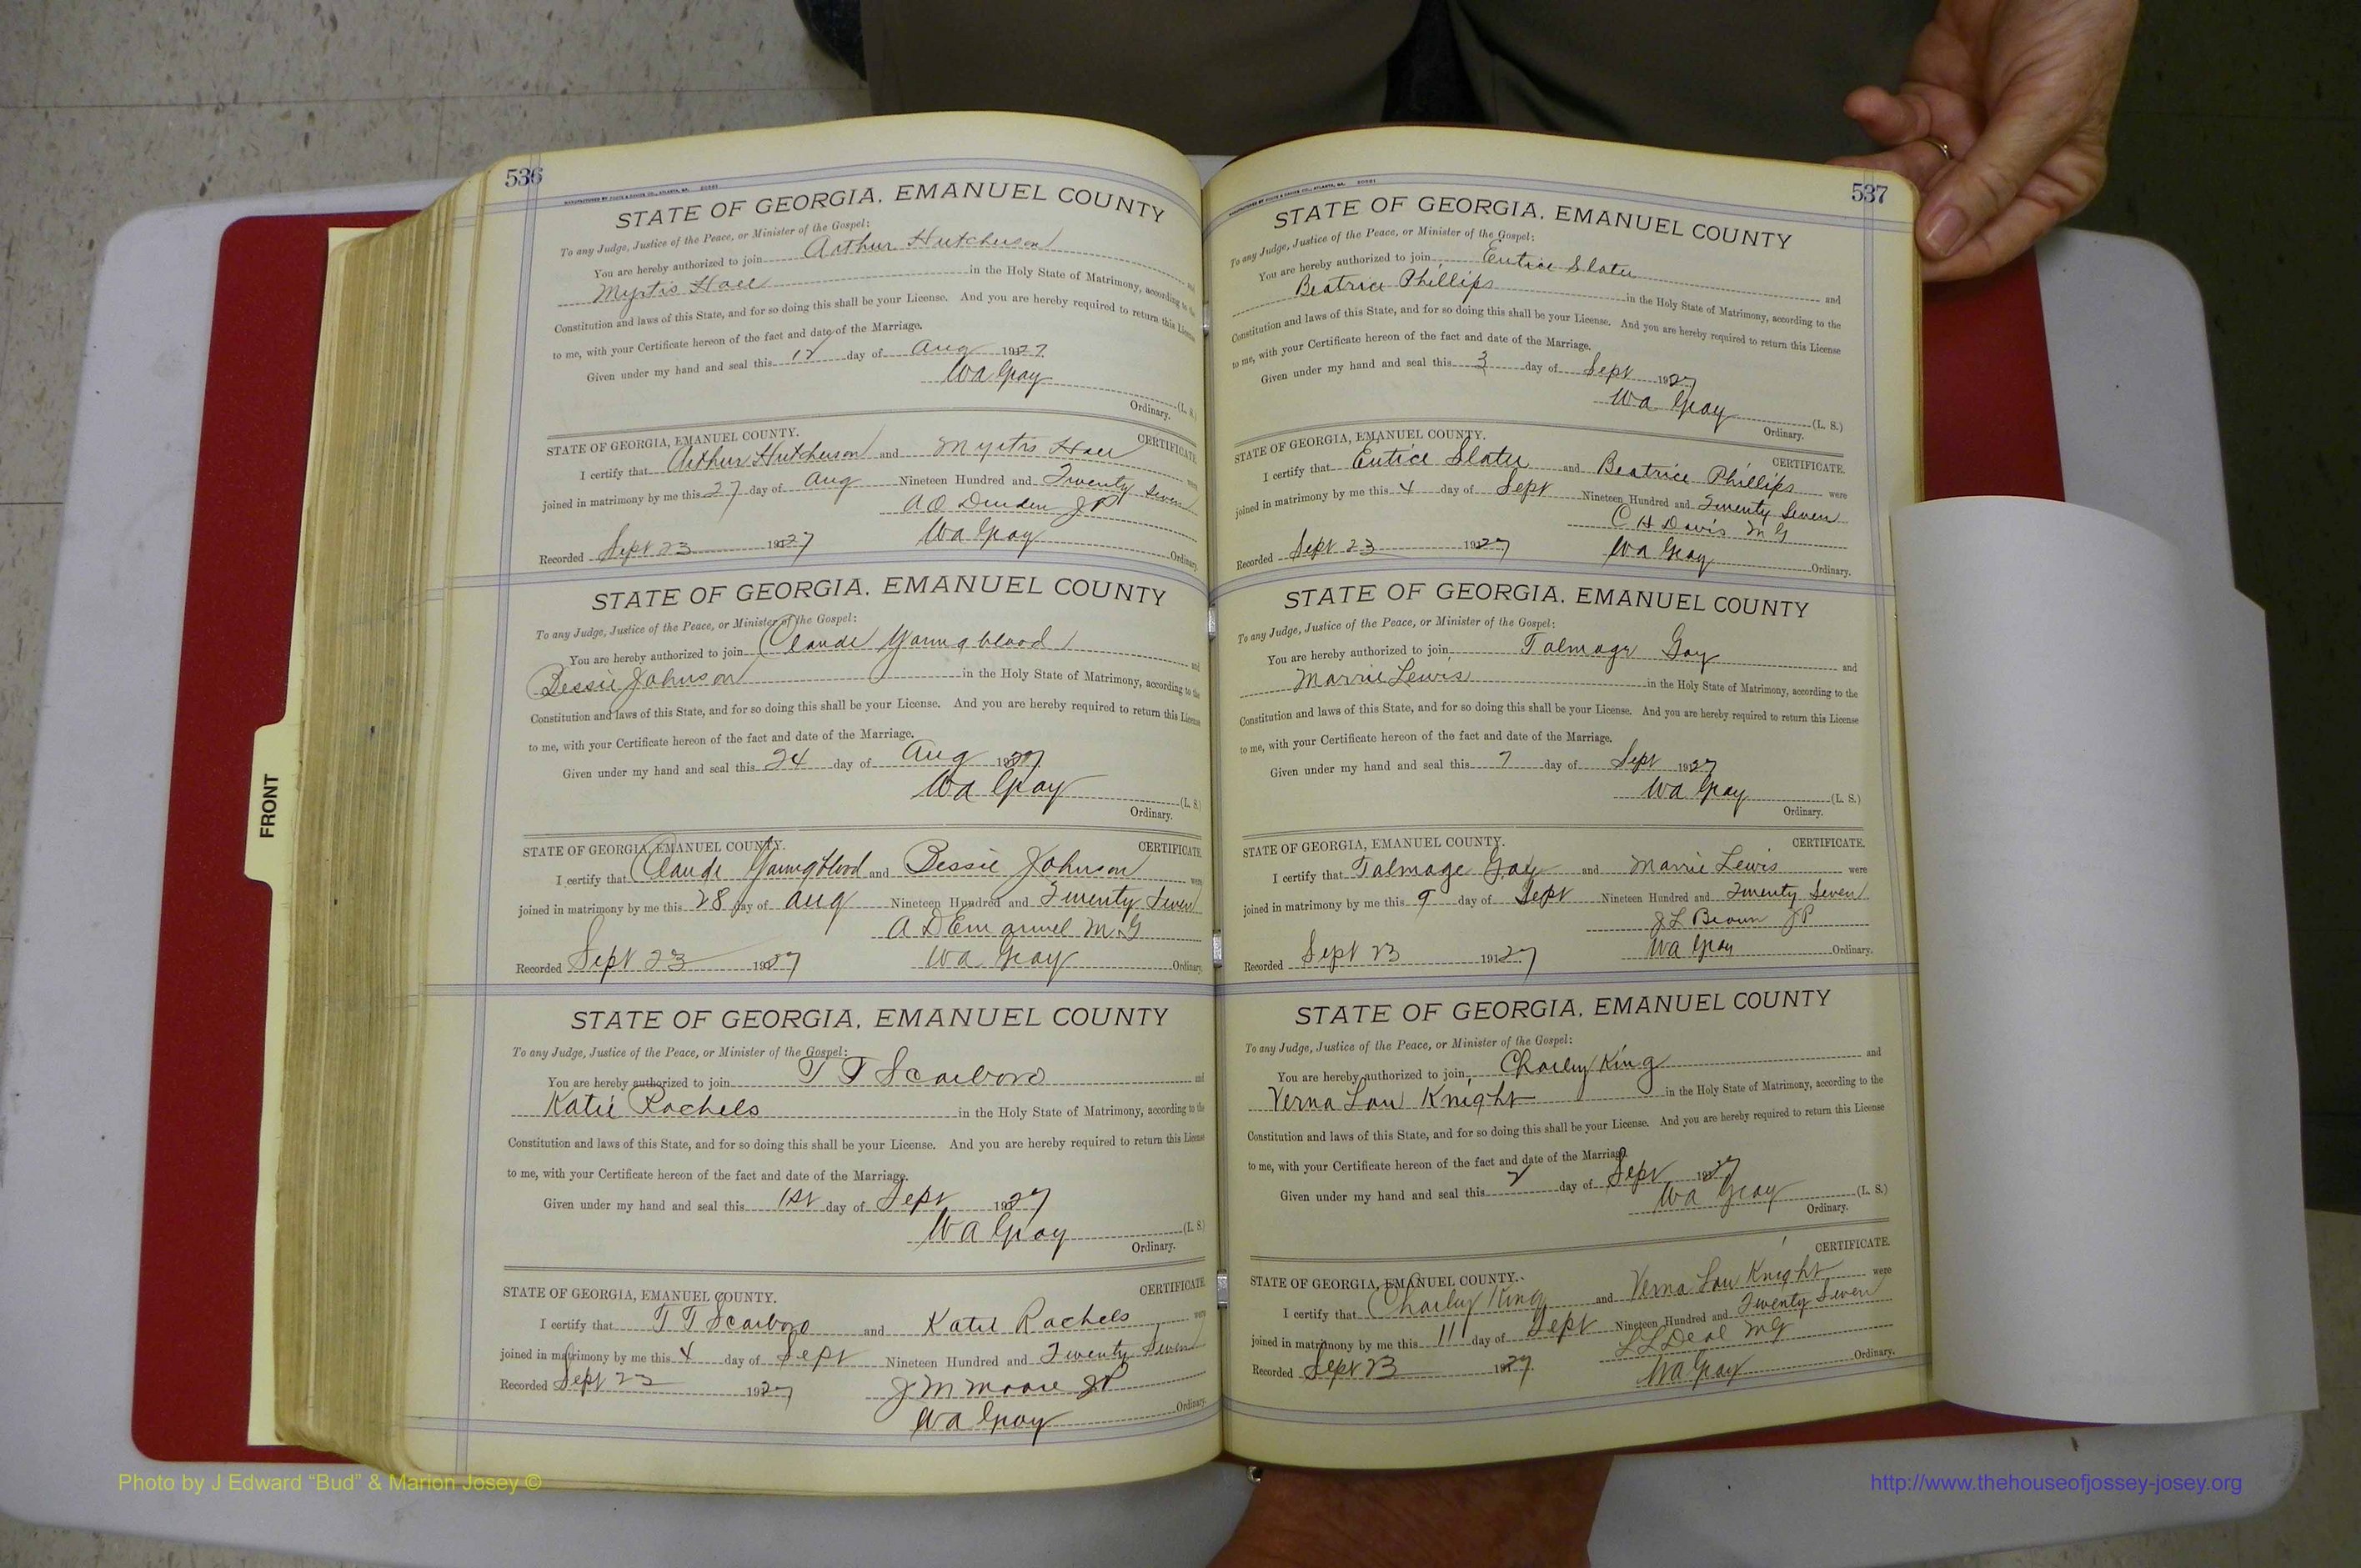 536
STATE OF GEORGIA, EMANUEL COUNTY
To any Judge, Justice of the Peace, or Minister of the Gospel:
You are hereby authorized to join Arthur Hutcheson and
Myrtis Hall in the Holy State of Matrimony, according to the
Constitution and laws of this State, and for so doing this shall be your License. And you are hereby required to return this License
to me, with your Certificate hereon of the fact and date of the Marriage.
Given under my hand and seal this 12 day of Aug 1927
Wa Gray (L. S.)
Ordinary.
STATE OF GEORGIA, EMANUEL COUNTY. CERTIFICATE
I certify that Arthur Hutcheson and Myrtis Hall were
joined in matrimony by me this 27 day of Aug Nineteen Hundred and Twenty Seven
A O Durden JP
Recorded Sept 23 1927 Wa Gray Ordinary.
STATE OF GEORGIA, EMANUEL COUNTY
To any Judge, Justice of the Peace, or Minister of the Gospel:
You are hereby authorized to join Claude Youngblood and
Bessie Johnson in the Holy State of Matrimony, according to the
Constitution and laws of this State, and for so doing this shall be your License. And you are hereby required to return this License
to me, with your Certificate hereon of the fact and date of the Marriage.
Given under my hand and seal this 24 day of Aug 1927
Wa Gray (L. S.)
Ordinary.
STATE OF GEORGIA, EMANUEL COUNTY. CERTIFICATE
I certify that Claude Youngblood and Bessie Johnson were
joined in matrimony by me this 28 day of Aug Nineteen Hundred and Twenty Seven
A D Emanuel M.G
Recorded Sept 23 1927 Wa Gray Ordinary.
STATE OF GEORGIA, EMANUEL COUNTY
To any Judge, Justice of the Peace, or Minister of the Gospel:
You are hereby authorized to join T T Scarboro and
Katie Rachels in the Holy State of Matrimony, according to the
Constitution and laws of this State, and for so doing this shall be your License. And you are hereby required to return this License
to me, with your Certificate hereon of the fact and date of the Marriage.
Given under my hand and seal this 1st day of Sept 1927
Wa Gray (L. S.)
Ordinary.
STATE OF GEORGIA, EMANUEL COUNTY. CERTIFICATE
I certify that T T Scarboro and Katie Rachels were
joined in matrimony by me this 4 day of Sept Nineteen Hundred and Twenty Seven
Recorded Sept 23 1927 J M Moore JP
Wa Gray Ordinary.
537
STATE OF GEORGIA, EMANUEL COUNTY
To any Judge, Justice of the Peace, or Minister of the Gospel:
You are hereby authorized to join Eutice Slater and
Beatrice Phillips in the Holy State of Matrimony, according to the
Constitution and laws of this State, and for so doing this shall be your License. And you are hereby required to return this License
to me, with your Certificate hereon of the fact and date of the Marriage.
Given under my hand and seal this 3 day of Sept 1927
Wa Gray (L. S.)
Ordinary.
STATE OF GEORGIA, EMANUEL COUNTY. CERTIFICATE.
I certify that Eutice Slater and Beatrice Phillips were
joined in matrimony by me this 4 day of Sept Nineteen Hundred and Twenty Seven
C H Davis M G
Recorded Sept 23 1927 Wa Gray Ordinary.
STATE OF GEORGIA, EMANUEL COUNTY
To any Judge, Justice of the Peace, or Minister of the Gospel:
You are hereby authorized to join Talmage Gay and
Marrie Lewis in the Holy State of Matrimony, according to the
Constitution and laws of this State, and for so doing this shall be your License. And you are hereby required to return this License
to me, with your Certificate hereon of the fact and date of the Marriage.
Given under my hand and seal this 7 day of Sept 1927
Wa Gray (L. S.)
Ordinary.
STATE OF GEORGIA, EMANUEL COUNTY. CERTIFICATE.
I certify that Talmage Gay and Marrie Lewis were
joined in matrimony by me this 9 day of Sept Nineteen Hundred and Twenty Seven
J L Brown JP
Recorded Sept 23 1927 Wa Gray Ordinary.
STATE OF GEORGIA, EMANUEL COUNTY
To any Judge, Justice of the Peace, or Minister of the Gospel:
You are hereby authorized to join Charley King and
Verna Lou Knight in the Holy State of Matrimony, according to the
Constitution and laws of this State, and for so doing this shall be your License. And you are hereby required to return this License
to me, with your Certificate hereon of the fact and date of the Marriage.
Given under my hand and seal this 2 day of Sept 1927
Wa Gray (L. S.)
Ordinary.
STATE OF GEORGIA, EMANUEL COUNTY. CERTIFICATE.
I certify that Charley King and Verna Lou Knight were
joined in matrimony by me this 11 day of Sept Nineteen Hundred and Twenty Seven
L L Deal MG
Recorded Sept 23 1927 Wa Gray Ordinary.
FRONT
Photo by J Edward “Bud” & Marion Josey ©
http://www.thehouseofjossey-josey.org